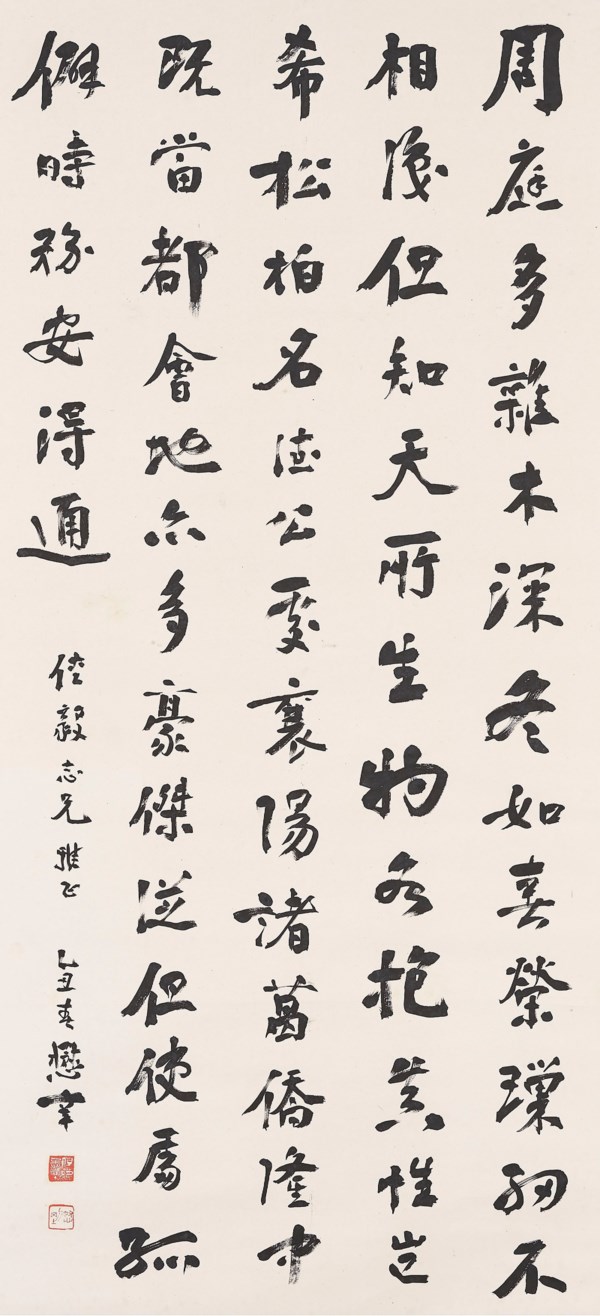 周庭多雜木深冬如春榮璅細不
相識但知天所生物各抱真性豈
希松柏名德公愛襄陽諸葛僑隆中
既當都會地亦多豪傑從但使處孤
僻時務安得通
毅志兄雅正
乙丑春懋